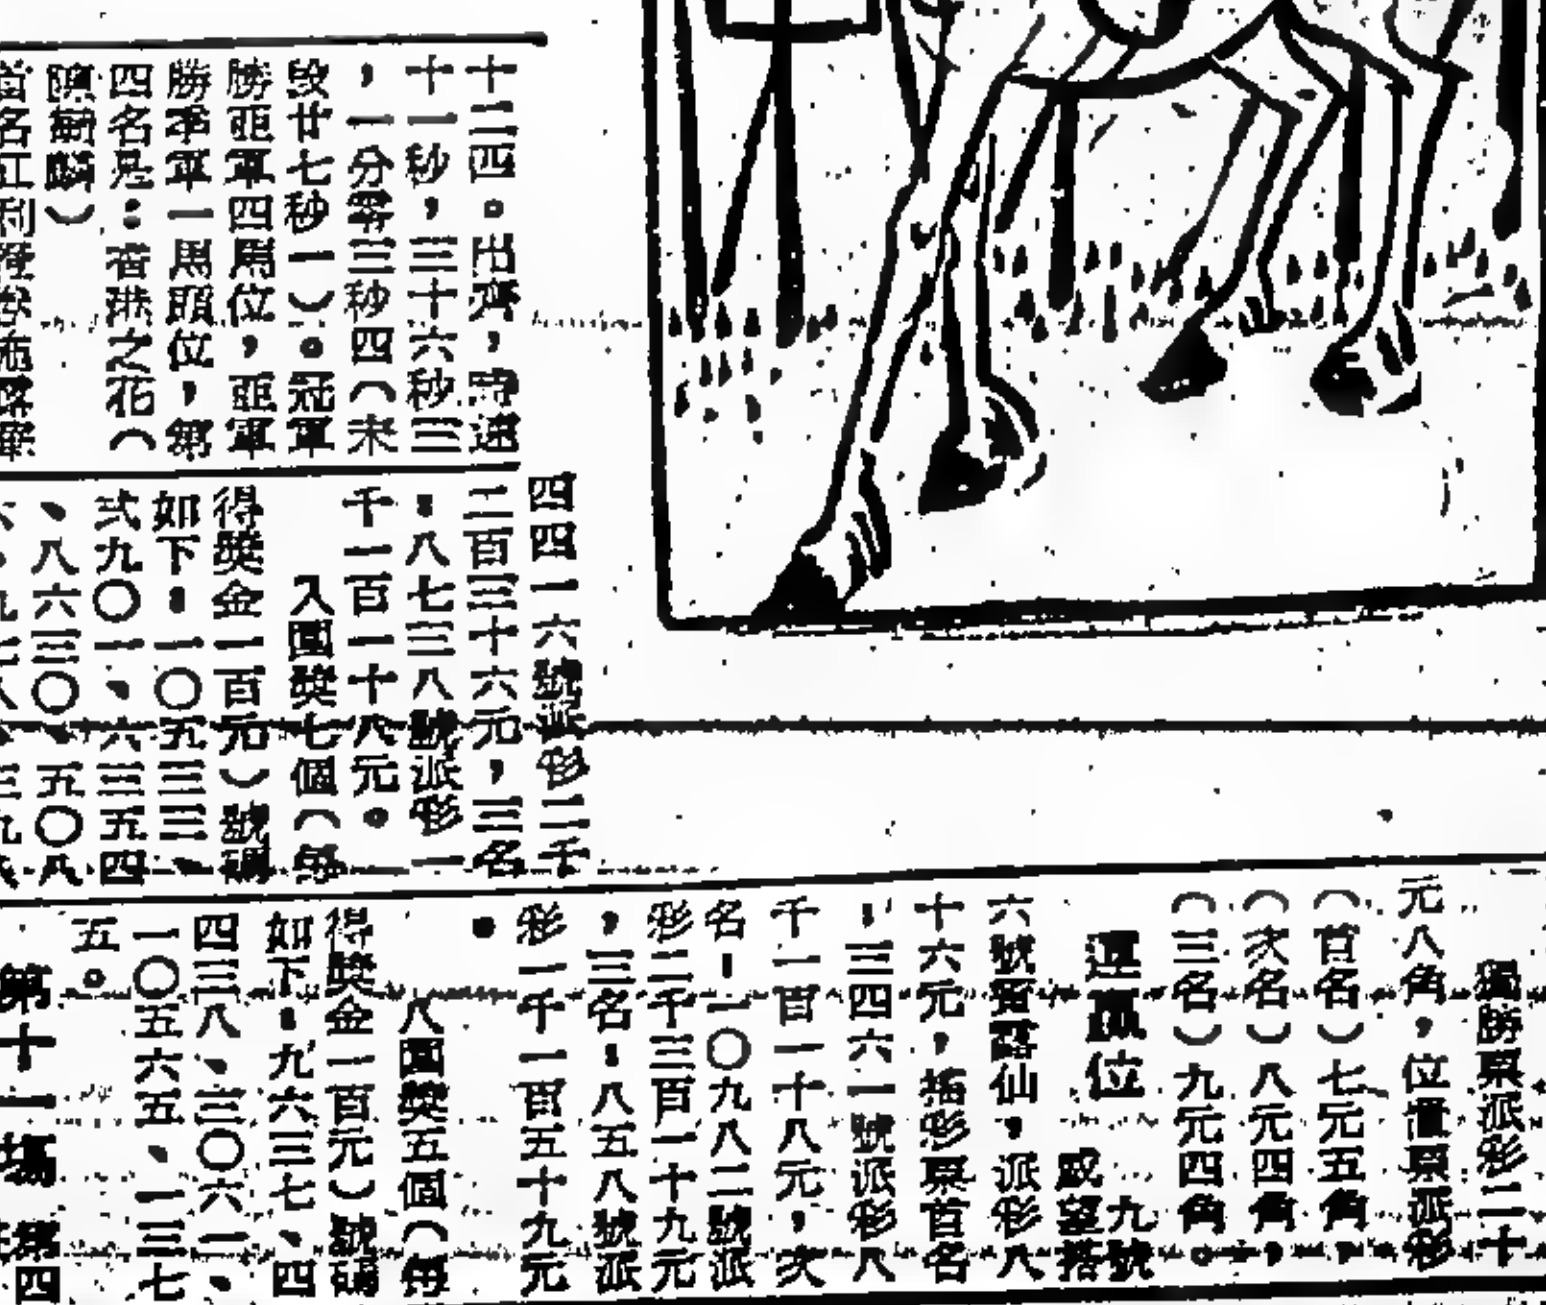 十二四。出齊，時速
十一秒，三十六秒三
，一分零三秒四（末
段廿七秒一）。冠軍
勝亞軍四馬位，亞軍
勝季軍一馬頭位，第
四名是：香港之花（
麟）
首名江利
四四一六號派彩二千
二百三十六元，三名
：八七三八號派彩一
千一百一十八元。
入圍獎七個（每
得獎金一百元）號碼
如下：一〇五三三、
弍九〇一、六三五四
、八六三〇、五〇八
獨勝票派彩二十
元八角，位置票派彩
（首名）七元五角，
（次名）八元四角，
（三名）九元四角。
連贏位 九號
威望搭
六號賓露仙，派彩八
十六元，搖彩票首名
：三四六一號派彩八
千一百一十八元，次
名：一〇九八二號派
彩二千三百一十九元
，三名：八五八號派
彩一千一百五十九元
。
入圍獎五個（每
得獎金一百元）號碼
如下：九六三七、四
四三八、三〇六一、
一〇五六五、一三七
五。
第十一場 第四